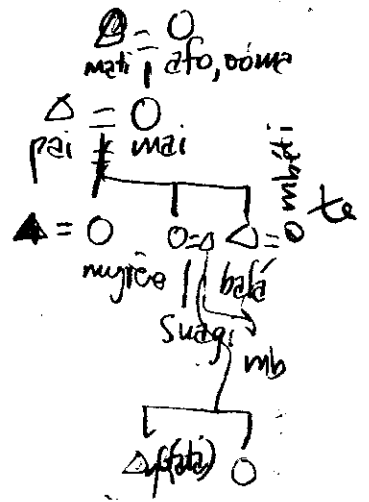 mati afo, oóma
pai mai
mbáti
te
nuyrise bafá
Suagi
mb
(fatá)